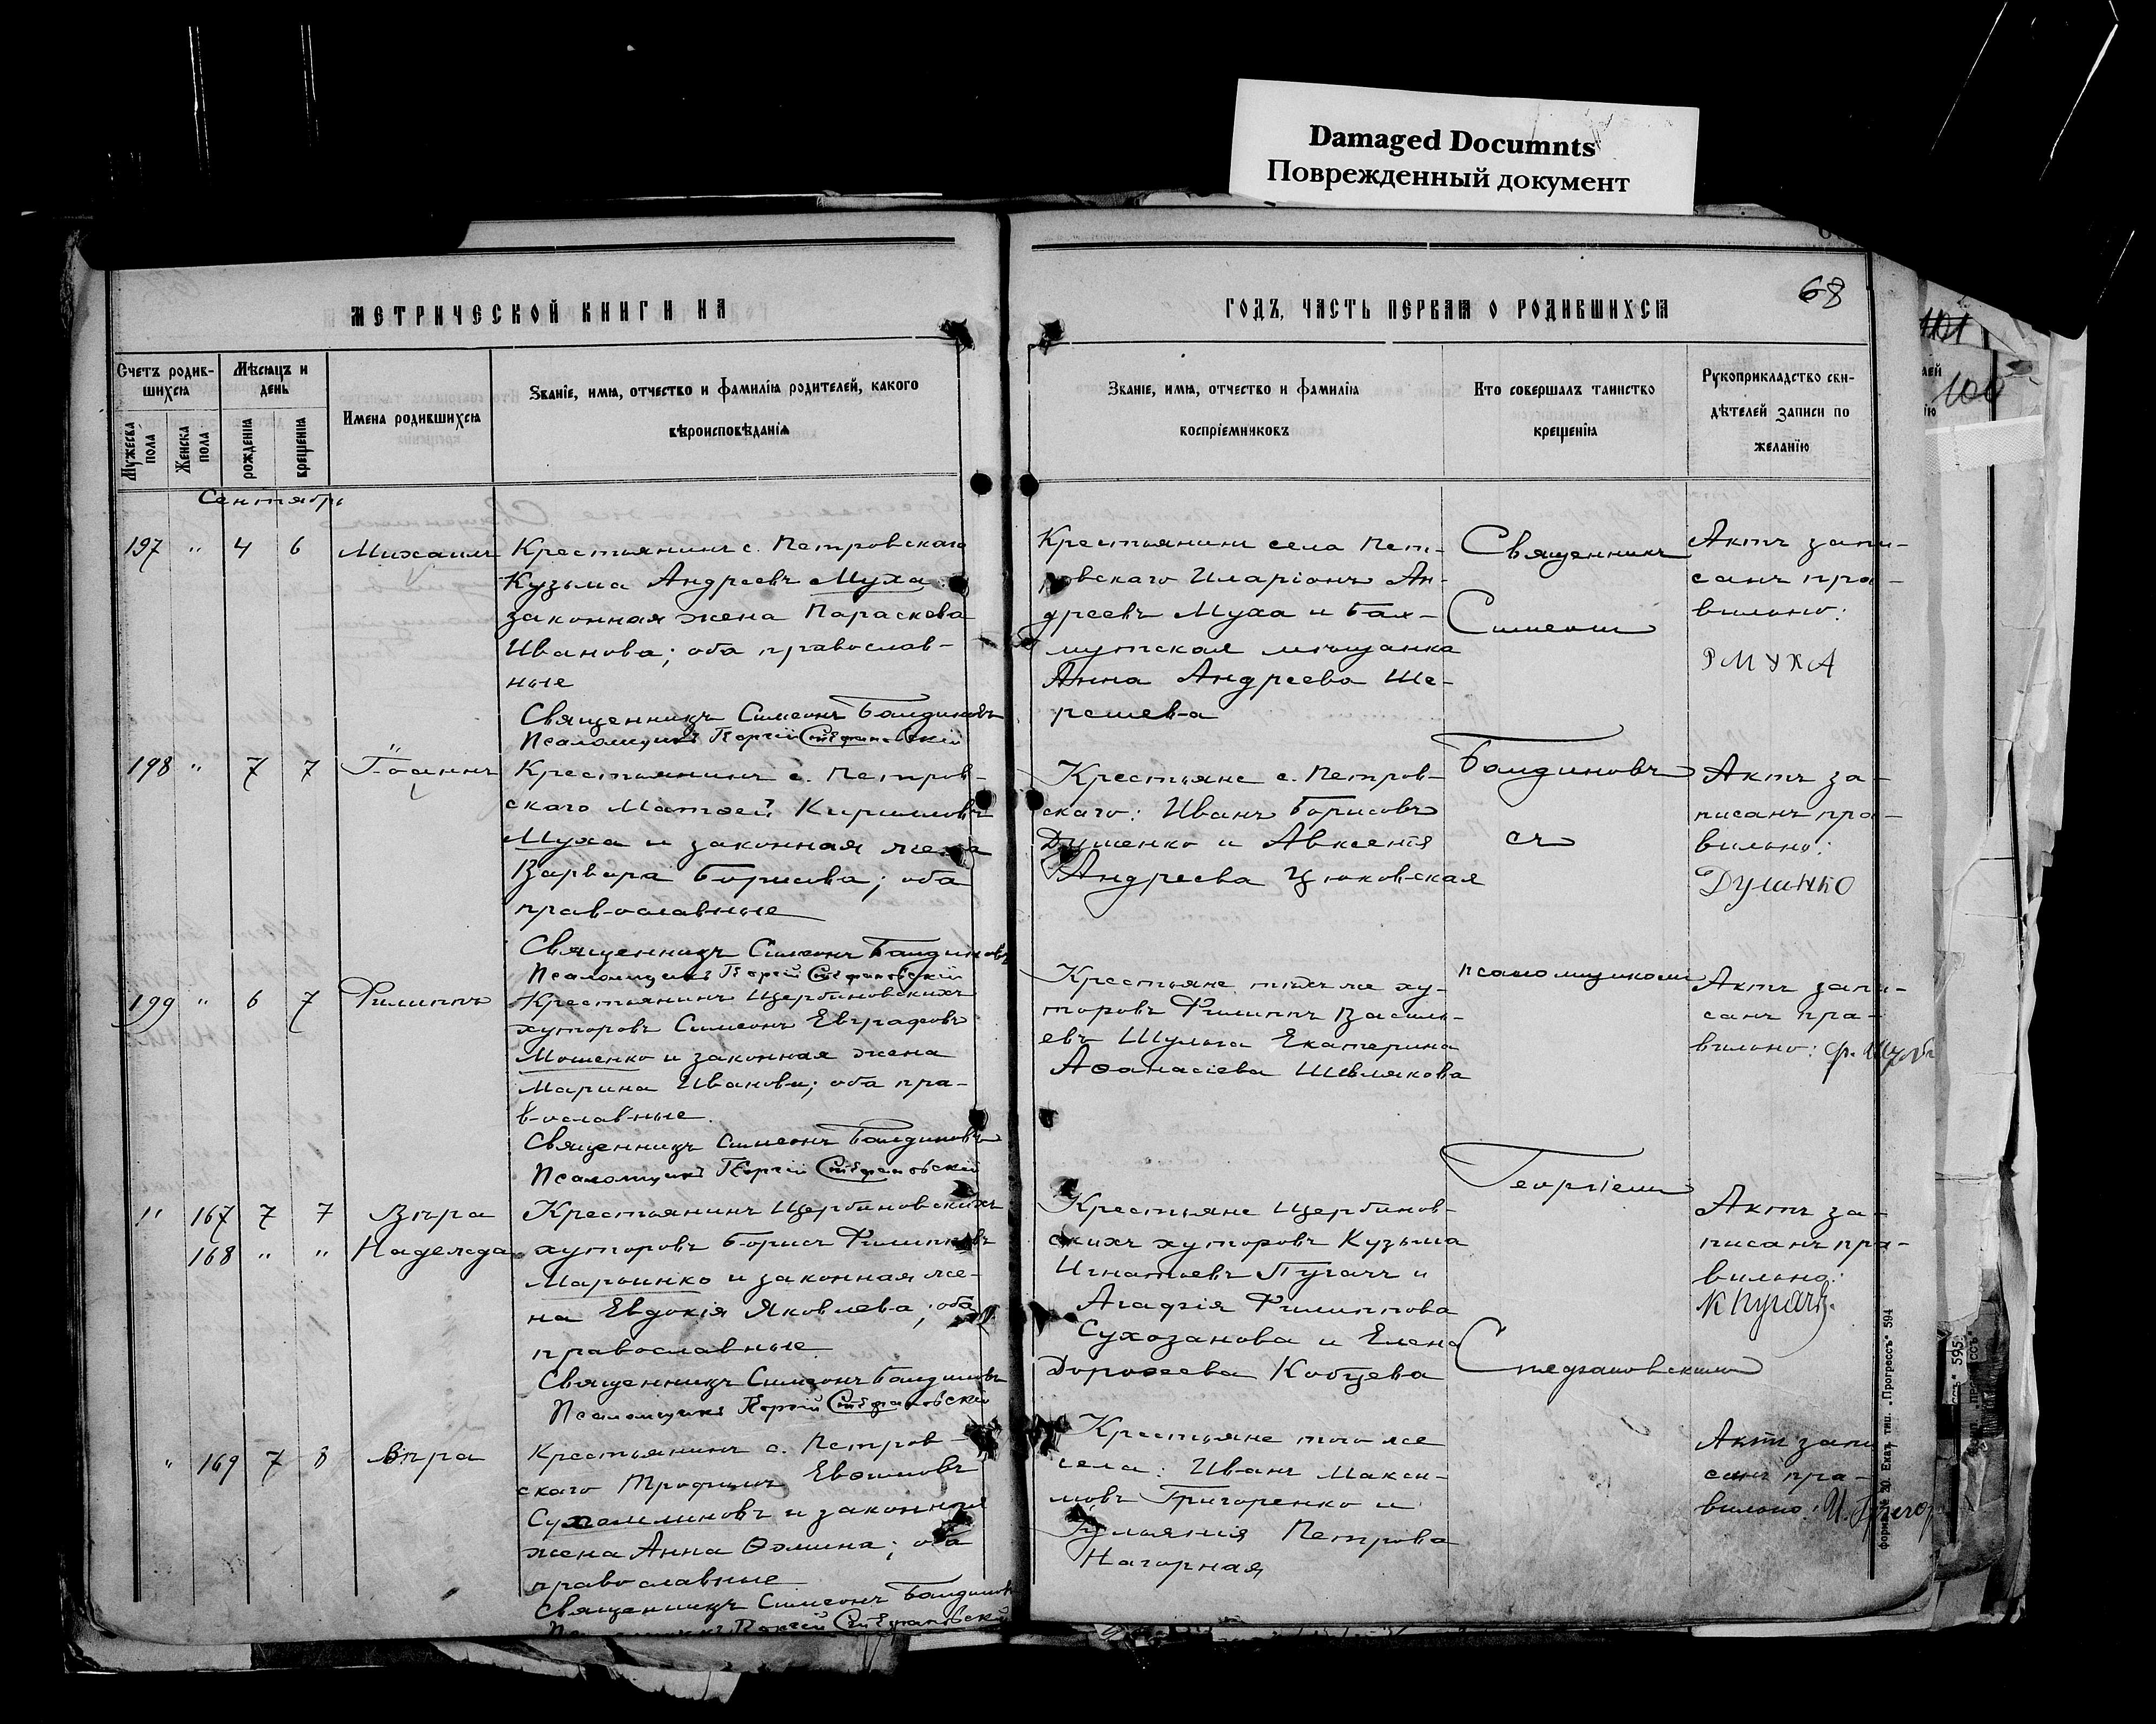 Damaged Documnts
Поврежденный документ
МЕТРИЧЕСКОЙ КНИГИ НА
ГОДЪ, ЧАСТЬ ПЕРВАЯ О РОДИВШИХСЯ
68
101
100
Счетъ родив-
шихся
Мѣсяцъ и
день
Мужеска
пола
Женска
пола
рожденія
крещенія
Имена родившихся
Званіе, имя, отчество и фамилія родителей, какого
вѣроисповѣданія
Званіе, имя, отчество и фамилія
воспріемниковъ
Кто совершалъ таинство
крещенія
Рукоприкладство сви-
дѣтелей записи по
желанію
Сентябрь
197 " 4 6 Михаилъ
Крестьянинъ с. Петровскаго
Кузьма Андреевъ Муха
законная жена Параскева
Иванова; оба православ-
ные
Священникъ Симеонъ Балдиновъ
Псаломщикъ Георгій Стефановскій
Крестьянинъ села Пет-
ровскаго Иларіонъ Ан-
дреевъ Муха и Бах-
мутская мѣщанка
Анна Андреева Ше-
решева
Священникъ
Симеонъ
Актъ запи-
санъ пра-
вильно:
МУХА
198 " 7 7 Іоаннъ
Крестьянинъ с. Петров-
скаго Матѳей Кирилловъ
Муха и законная жена
Варвара Борисова; оба
православные
Священникъ Симеонъ Балдиновъ
Псаломщикъ Георгій Стефановскій
Крестьяне с. Петров-
скаго: Иванъ Борисовъ
Душенко и Авксентія
Андреева Цюковская
Балдиновъ
съ
Актъ за-
писанъ пра-
вильно:
199 " 6 7 Филиппъ
Крестьянинъ Щербиновскихъ
хуторовъ Симеонъ Евграфовъ
Мошенко и законная жена
Марина Иванова; оба пра-
вославные.
Священникъ Симеонъ Балдиновъ
Псаломщикъ Георгій Стефановскій
Крестьяне тѣхъ же ху-
торовъ Филиппъ Василь-
евъ Шульга Екатерина
Аѳанасіева Шевлякова
псаломщикомъ
Актъ запи-
санъ пра-
вильно: Ф.
" 167 7 7 Вѣра
168 " " Надежда
Крестьянинъ Щербиновскихъ
хуторовъ Борисъ Филипповъ
Марьинко и законная же-
на Евдокія Яковлева; оба
православные.
Священникъ Симеонъ Балдиновъ
Псаломщикъ Георгій Стефановскій
Крестьяне Щербинов-
скихъ хуторовъ Кузьма
Игнатьевъ Пугачъ и
Агафія Филиппова
Сухозанова и Елена
Дороѳеева Кобцева
Георгіемъ
Стефановскимъ
Актъ за-
писанъ пра-
вильно:
К Пугачъ
" 169 7 8 Вѣра
Крестьянинъ с. Петров
скаго Трофимъ Евѳимовъ
Сухомлиновъ и законная
жена Анна Ѳомина; оба
православные
Священникъ Симеонъ Балдиновъ
Псаломщикъ Георгій Стефановскій
Крестьяне того же
села: Иванъ Макси-
мовъ Григоренко и
Петрова
Нагорная
Актъ запи
санъ пра-
вильно: И.
форма № 20. Екат. тип. „Прогрессъ" 594